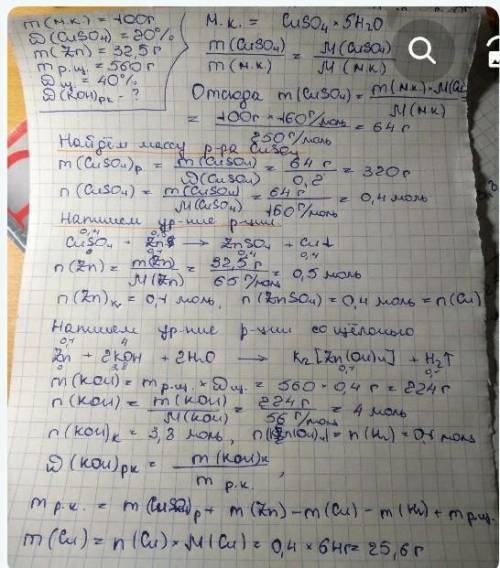 m(м.к.) = 100г
D(CuSO4) = 20%
m(Zn) = 32,5г
m р.щ. = 560г
Dщ = 40%
D(KOH)рк - ?
М.к. = CuSO4 * 5H2O
m(CuSO4) / m(м.к.) = M(CuSO4) / M(м.к.)
Отсюда m(CuSO4) = m(м.к) * M(Cu / M(м.к)
= 100г * 160г/моль / 250г/моль = 64г
Найдём массу р-ра CuSO4
m(CuSO4)р = m(CuSO4) / D(CuSO4) = 64 / 0,2 = 320г
n(CuSO4) = m(CuSO4) / M(CuSO4) = 64г / 160г/моль = 0,4 моль
Напишем ур-ние р-ции
0,4 0,5
CuSO4 + Zn → ZnSO4 + Cu↓
0 0,1 0,4 0,4
n(Zn) = m(Zn) / M(Zn) = 32,5г / 65г/моль = 0,5 моль
n(Zn)к = 0,1 моль, n(ZnSO4) = 0,4 моль = n(Cu)
Напишем ур-ние р-ции со щёлочью
0,1 4
Zn + 2KOH + 2H2O → K2[Zn(OH)4] + H2↑
0 3,8 0,1 0,1
m(KOH) = m р.щ. * Dщ. = 560 * 0,4г = 224г
n(KOH) = m(KOH) / M(KOH) = 224г / 56г/моль = 4 моль
n(KOH)к = 3,8 моль, n(K2[Zn(OH)4]) = n(H2) = 0,1 моль
D(KOH)рк = m(KOH)к / m р.к. ,
m р.к. = m(CuSO4)р + m(Zn) - m(Cu) - m(H2) + m р.щ.
m(Cu) = n(Cu) * M(Cu) = 0,4 * 64г = 25,6г